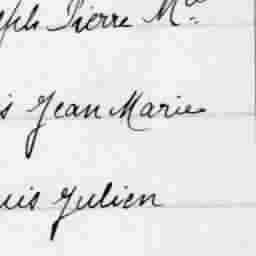 eph Pierre M.
s Jean Marie
uis Julien